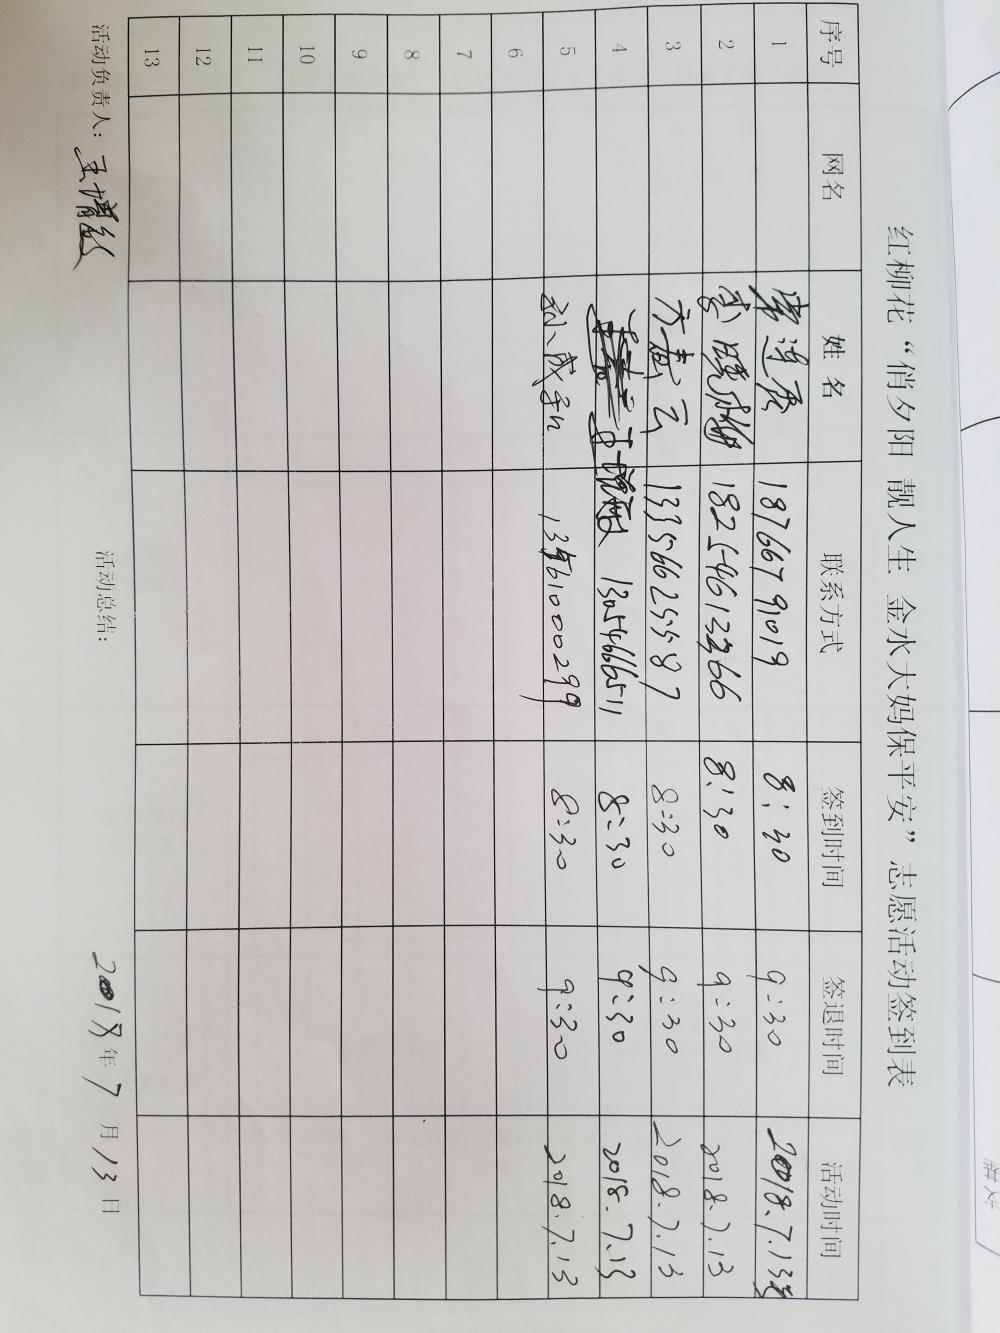 红柳花“俏夕阳 靓人生 金水大妈保平安”志愿活动签到表
序号 网名 姓 名 联系方式 签到时间 签退时间 活动时间
1 18766791019 8:30 9:30 2018.7.13
2 李晓梅 18254613366 8:30 9:30 2018.7.13
3 方惠云 13356625587 8:30 9:30 2018.7.13
4 13054666511 8:30 9:30 2018.7.13
5 孙成手 8:30 9:30 2018.7.13
6
7
8
9
10
11
12
13
活动负责人: 王增敏 活动总结: 2018年7月13日